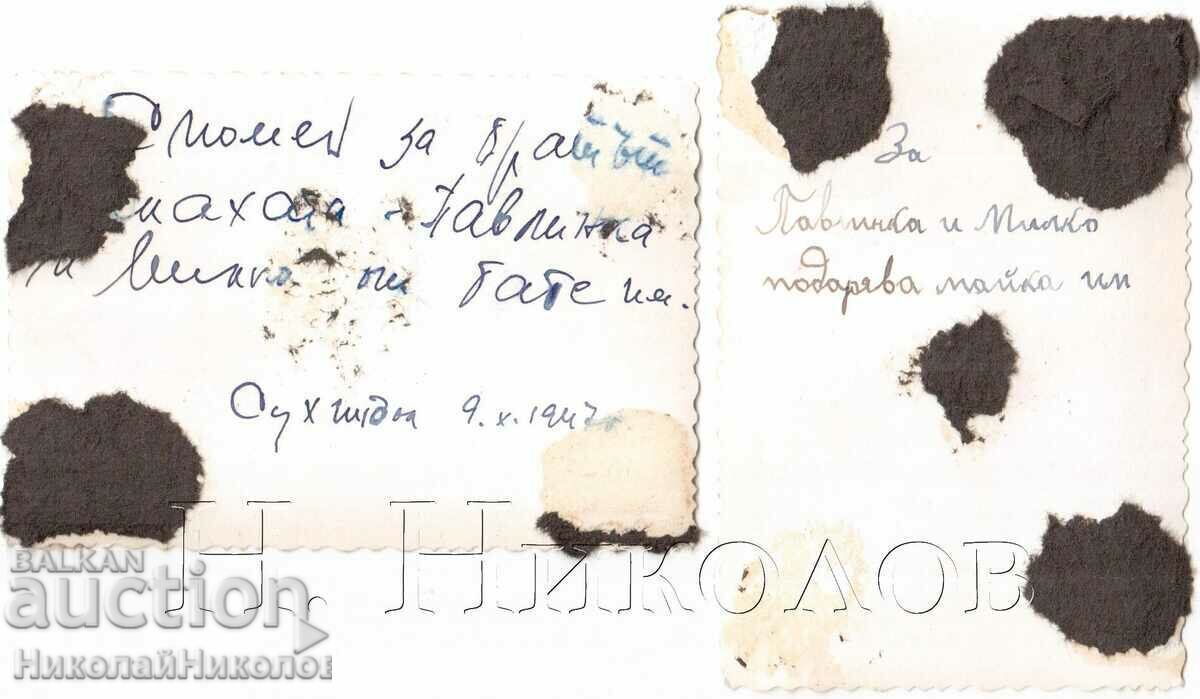 Спомен за
махала - Павлинка
и Милко от бате им.
9.X.1947
За
Павлинка и Милко
подарява майка им
Н. Николов
BALKAN
auction
НиколайНиколов